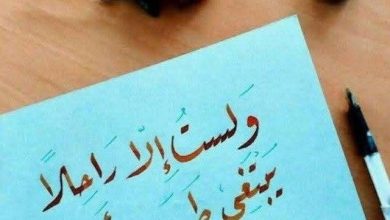 وَلستُ إلّا رَاحلًا
يَبتَغي